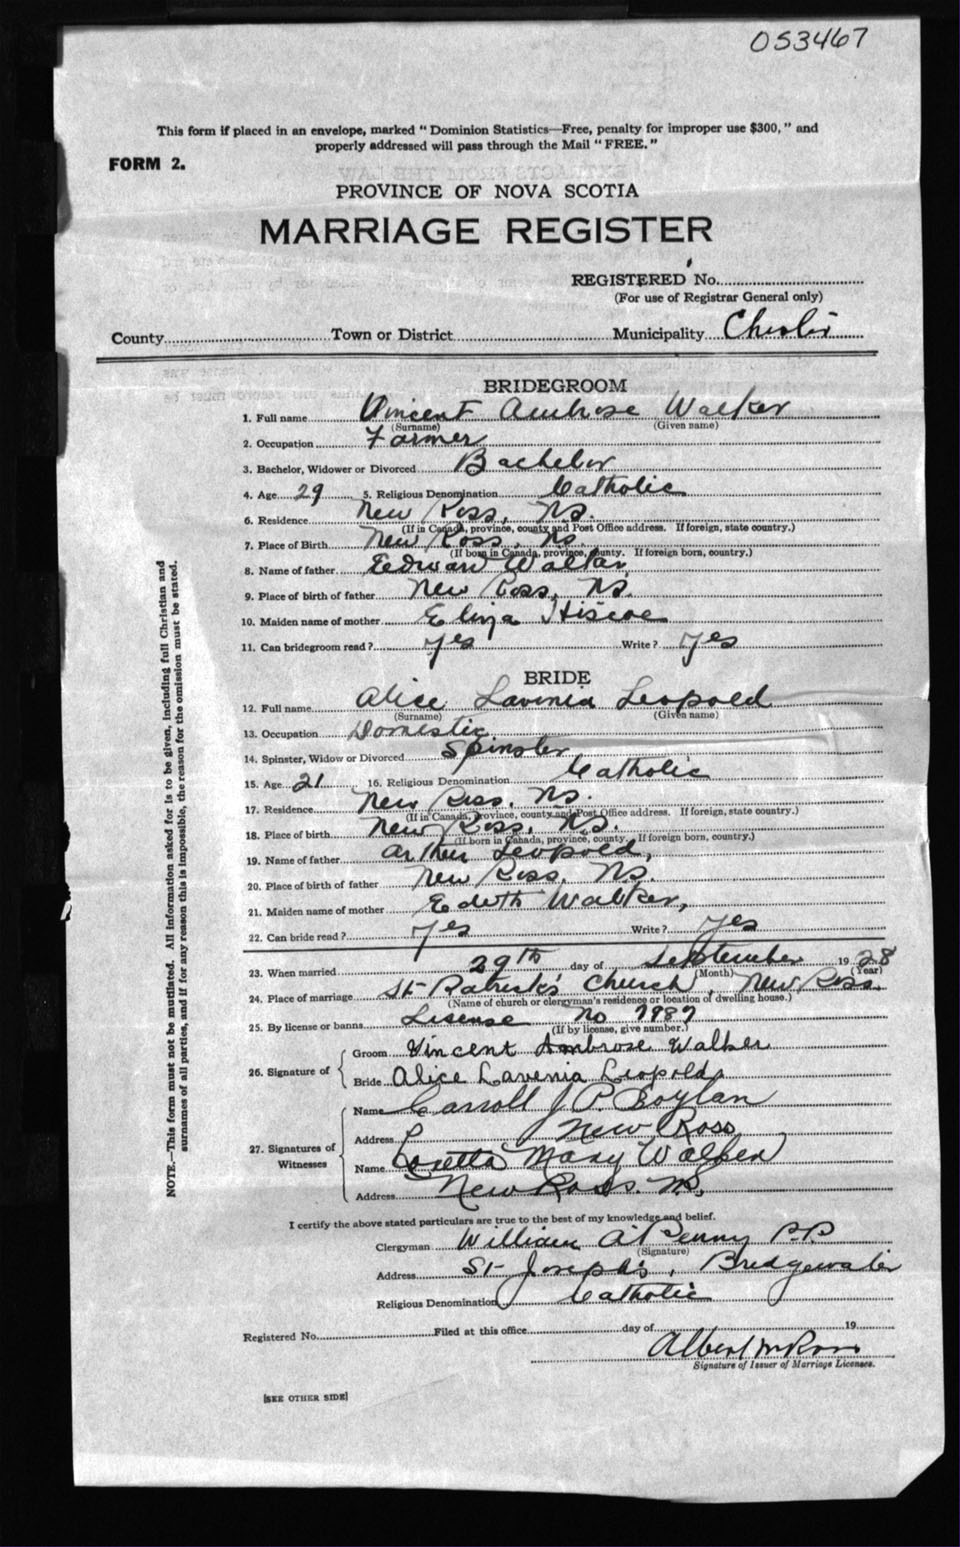 053467
This form if placed in an envelope, marked "Dominion Statistics—Free, penalty for improper use $300," and
properly addressed will pass through the Mail "FREE."
FORM 2.
PROVINCE OF NOVA SCOTIA
MARRIAGE REGISTER
REGISTERED No.
(For use of Registrar General only)
County Town or District Municipality Chester
BRIDEGROOM
1. Full name Vincent Ambrose Walker
(Surname) (Given name)
2. Occupation Farmer
3. Bachelor, Widower or Divorced Bachelor
4. Age 29 5. Religious Denomination Catholic
6. Residence New Ross, N.S.
(If in Canada, province, county and Post Office address. If foreign, state country.)
7. Place of Birth New Ross, N.S.
(If born in Canada, province, county. If foreign born, country.)
8. Name of father Edward Walker
9. Place of birth of father New Ross, N.S.
10. Maiden name of mother Eliza Hiscoe
11. Can bridegroom read? yes Write? yes
BRIDE
12. Full name Alice Lavenia Leopold
(Surname) (Given name)
13. Occupation Domestic
14. Spinster, Widow or Divorced Spinster
15. Age 21 16. Religious Denomination Catholic
17. Residence New Ross, N.S.
(If in Canada, province, county and Post Office address. If foreign, state country.)
18. Place of birth New Ross, N.S.
(If born in Canada, province, county. If foreign born, country.)
19. Name of father Arthur Leopold,
20. Place of birth of father New Ross, N.S.
21. Maiden name of mother Edith Walker,
22. Can bride read? yes Write? yes
23. When married 29th day of September 1928
(Month) (Year)
24. Place of marriage St Patrick's Church, New Ross.
(Name of church or clergyman's residence or location of dwelling house.)
25. By license or banns Lisense No 7987
(If by license, give number.)
26. Signature of Groom Vincent Ambrose Walker
Bride Alice Lavenia Leopold
27. Signatures of Witnesses Name Carroll J. P. Boylan
Address New Ross
Name Loretta Mary Walker
Address New Ross. N.S.
I certify the above stated particulars are true to the best of my knowledge and belief.
Clergyman William A. Penny P.P.
(Signature)
Address St Joseph's, Bridgewater
Religious Denomination Catholic
Registered No. Filed at this office day of 19
Albert M Ross
Signature of Issuer of Marriage Licenses.
[SEE OTHER SIDE]
NOTE.—This form must not be mutilated. All information asked for is to be given, including full Christian and
surnames of all parties, and if for any reason this is impossible, the reason for the omission must be stated.